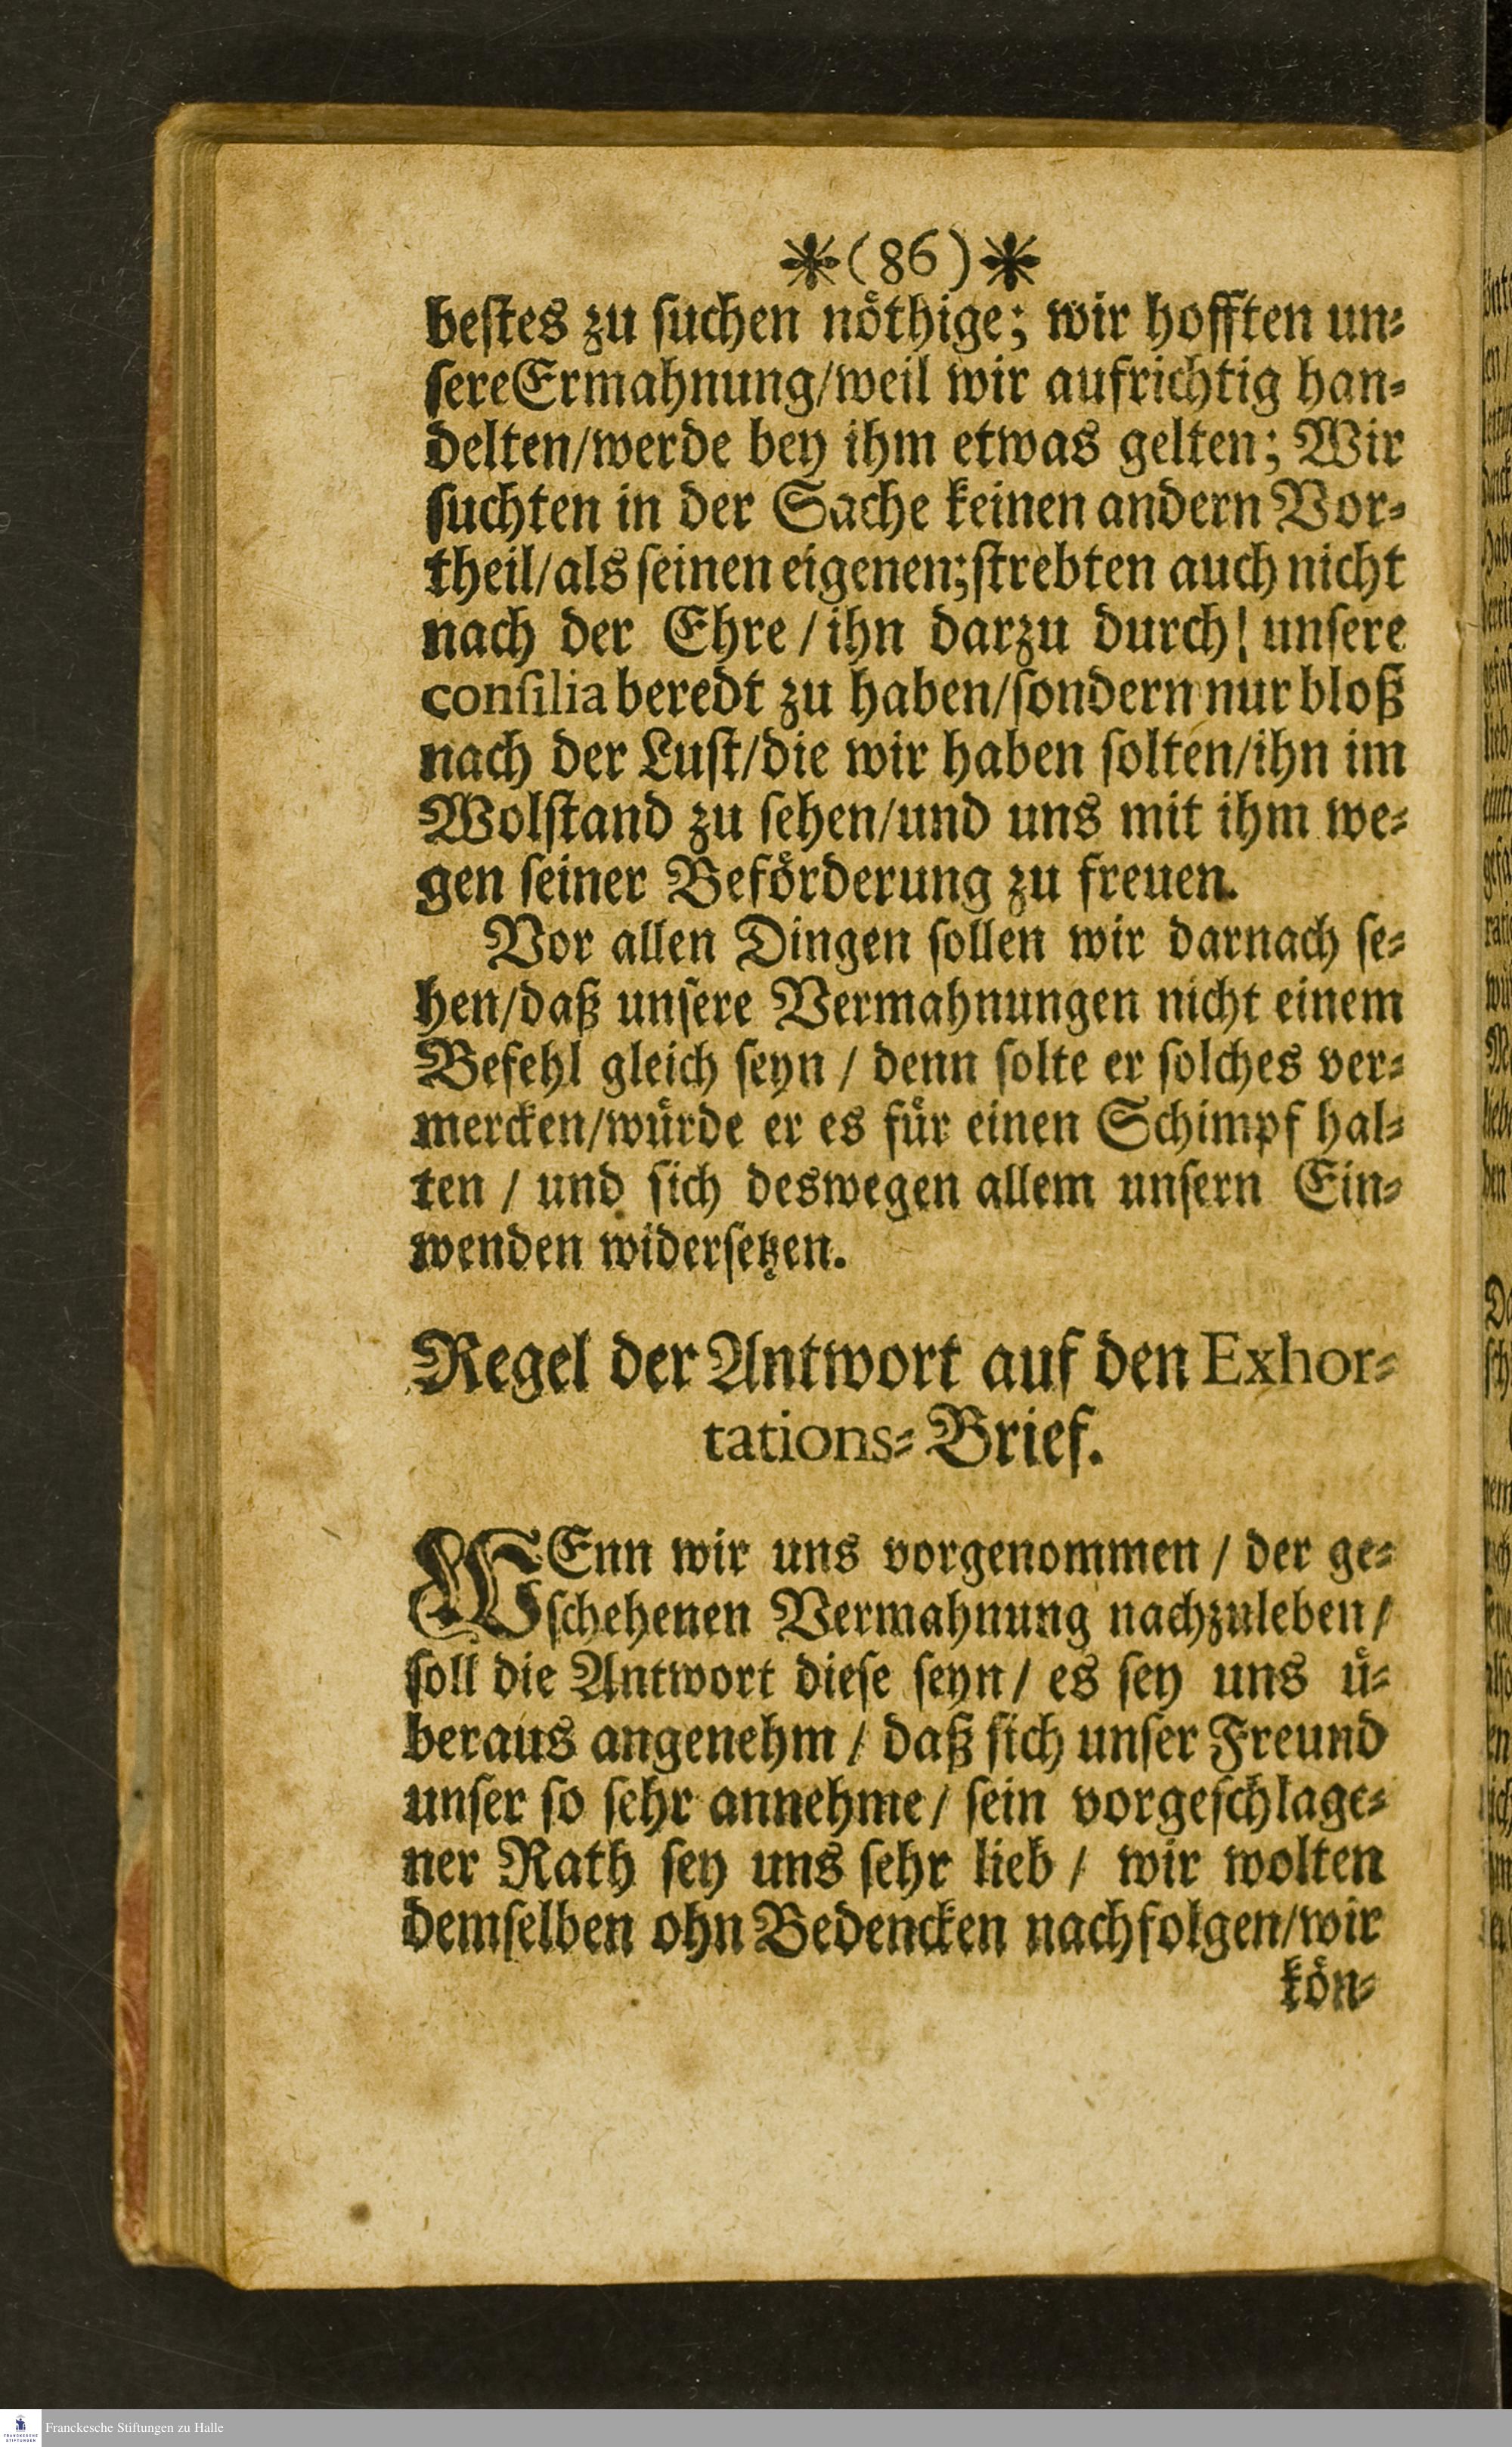 *(86)*
bestes zu suchen nöthige; wir hofften un-
sere Ermahnung/weil wir aufrichtig han-
delten/werde bey ihm etwas gelten; Wir
suchten in der Sache keinen andern Vor-
theil/als seinen eigenen; strebten auch nicht
nach der Ehre / ihn darzu durch! unsere
consilia beredt zu haben/sondern nur bloß
nach der Lust/die wir haben solten/ihn im
Wolstand zu sehen/und uns mit ihm we-
gen seiner Beförderung zu freuen.
Vor allen Dingen sollen wir darnach se-
hen/daß unsere Vermahnungen nicht einem
Befehl gleich seyn / denn solte er solches ver-
mercken/würde er es für einen Schimpf hal-
ten / und sich deswegen allem unsern Ein-
wenden widersetzen.
Regel der Antwort auf den Exhor-
tations-Brief.
WEnn wir uns vorgenommen / der ge-
schehenen Vermahnung nachzuleben /
soll die Antwort diese seyn / es sey uns ü-
beraus angenehm / daß sich unser Freund
unser so sehr annehme / sein vorgeschlage-
ner Rath sey uns sehr lieb / wir wolten
demselben ohn Bedencken nachfolgen/wir
kön-
Franckesche Stiftungen zu Halle